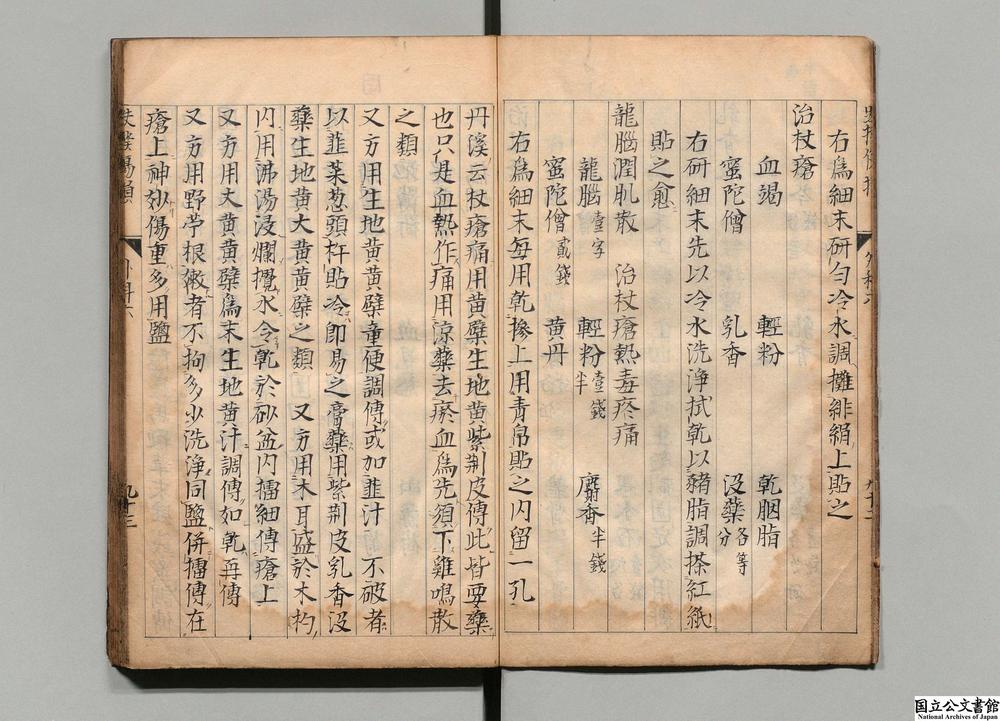 右為細末研勻冷水調攤緋絹上貼之
治杖瘡
血竭 輕粉 乾胭脂
蜜陀僧 乳香 没藥各等分
右研細末先以冷水洗浄拭乾以豬脂調搽紅紙
貼之愈
龍腦潤肌散 治杖瘡熱毒疼痛
龍腦壹字 輕粉壹錢半 麝香半錢
蜜陀僧貳錢 黄丹
右為細末每用乾摻上用青帛貼之内留一孔
丹溪云杖瘡痛用黄蘗生地黄紫荆皮傅此皆要藥
也只是血熱作痛用涼藥去瘀血為先須下雞鳴散
之類
又方用生地黄黄蘗童便調傅或加韭汁 不破者
以韭菜葱頭杵貼冷即易之膏藥用紫荆皮乳香没
藥生地黄大黄黄蘗之類 又方用木耳盛於木杓
内用沸湯浸爛攪水令乾於砂盆内擂細傅瘡上
又方用大黄黄蘗為末生地黄汁調傅如乾再傅
又方用野苧根嫩者不拘多少洗浄同鹽併擂傅在
瘡上神妙傷重多用鹽
九十三
国立公文書館
National Archives of Japan